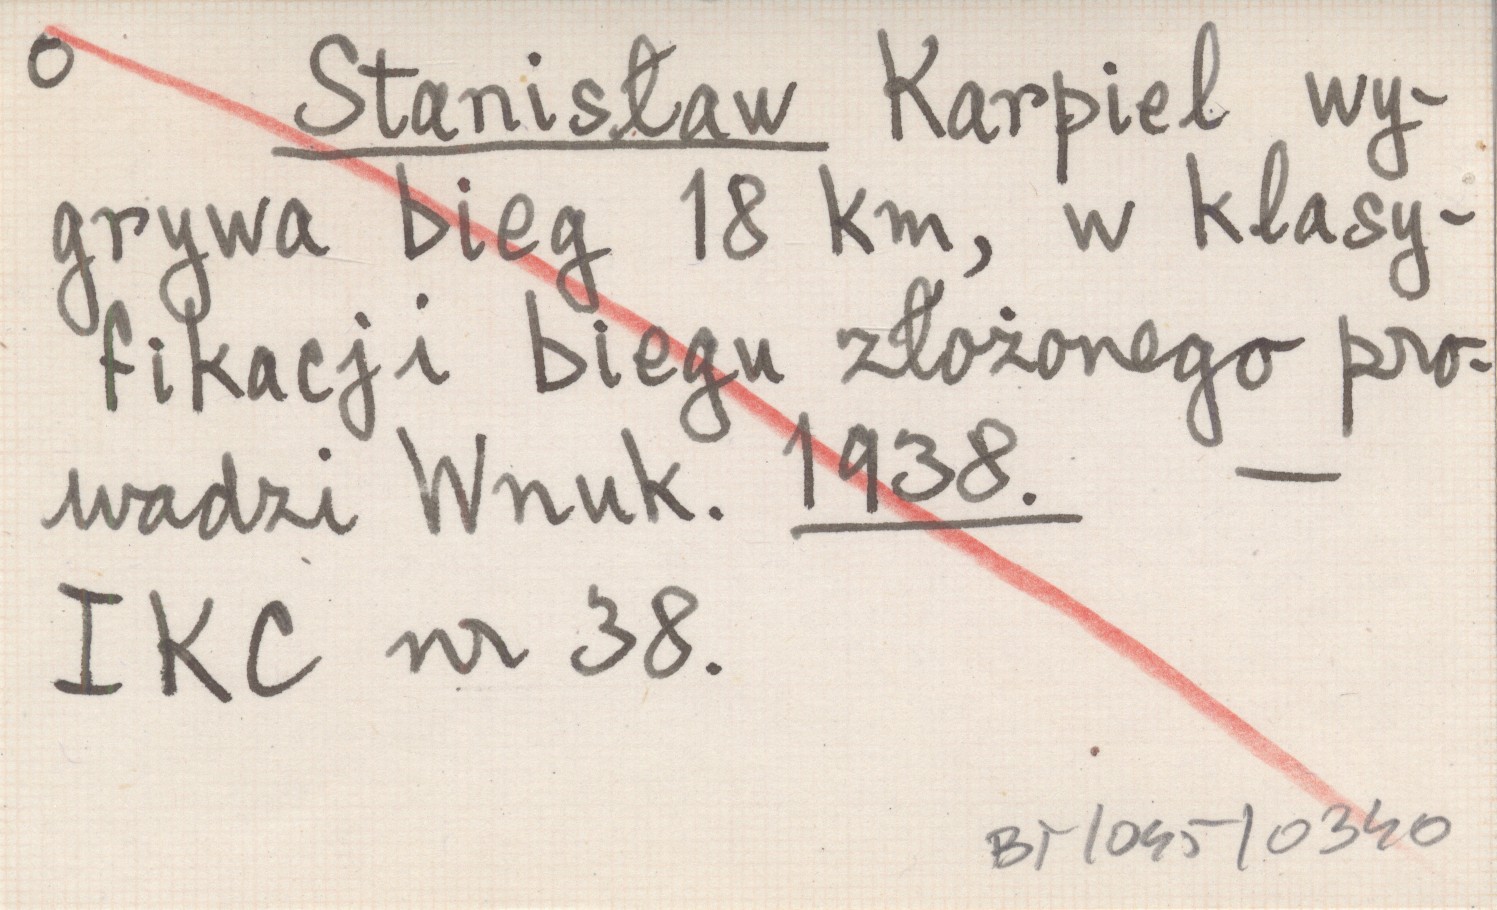 o Stanisław Karpiel wy-
grywa bieg 18 km, w klasy-
fikacji biegu złożonego pro-
wadzi Wnuk. 1938. —
IKC nr 38.
BT/045/0340